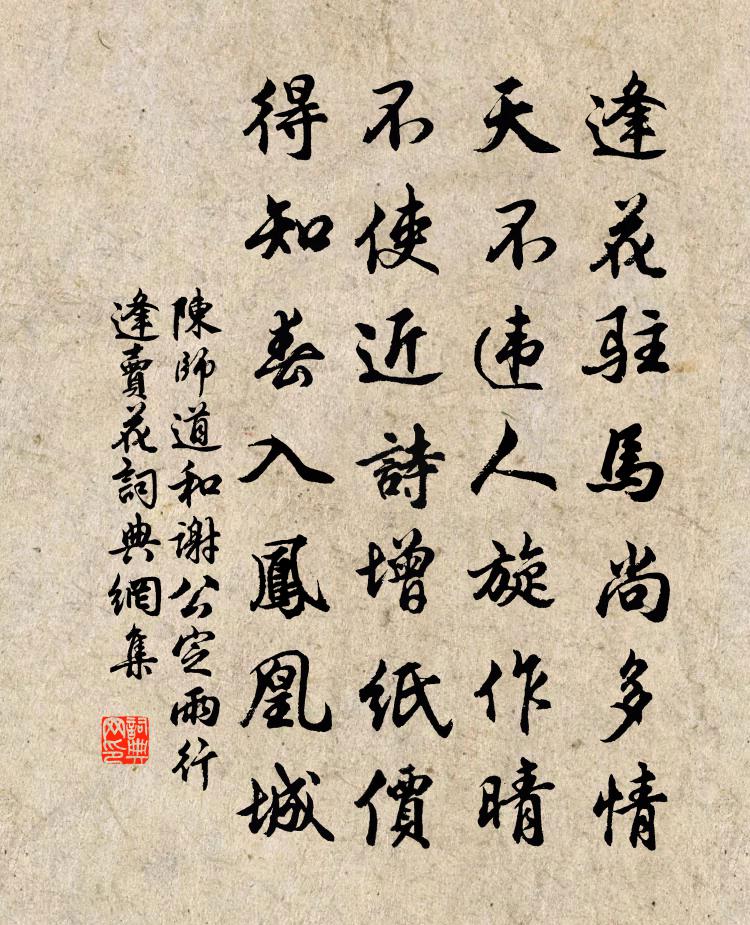 逢花駐馬尚多情
天不違人旋作晴
不使近詩增紙價
得知春入鳳凰城
陳師道和谢公定雨行
逢賣花詞典網集
詞典网印